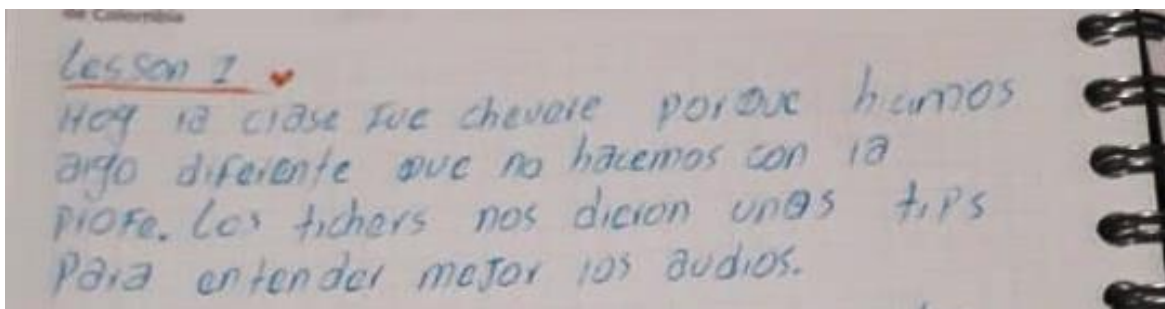 de Colombia
Lesson 1
Hoy la clase fue chevere porque hicimos
algo diferente que no hacemos con la
profe. Los tichers nos dieron unos tips
para entender mejor los audios.